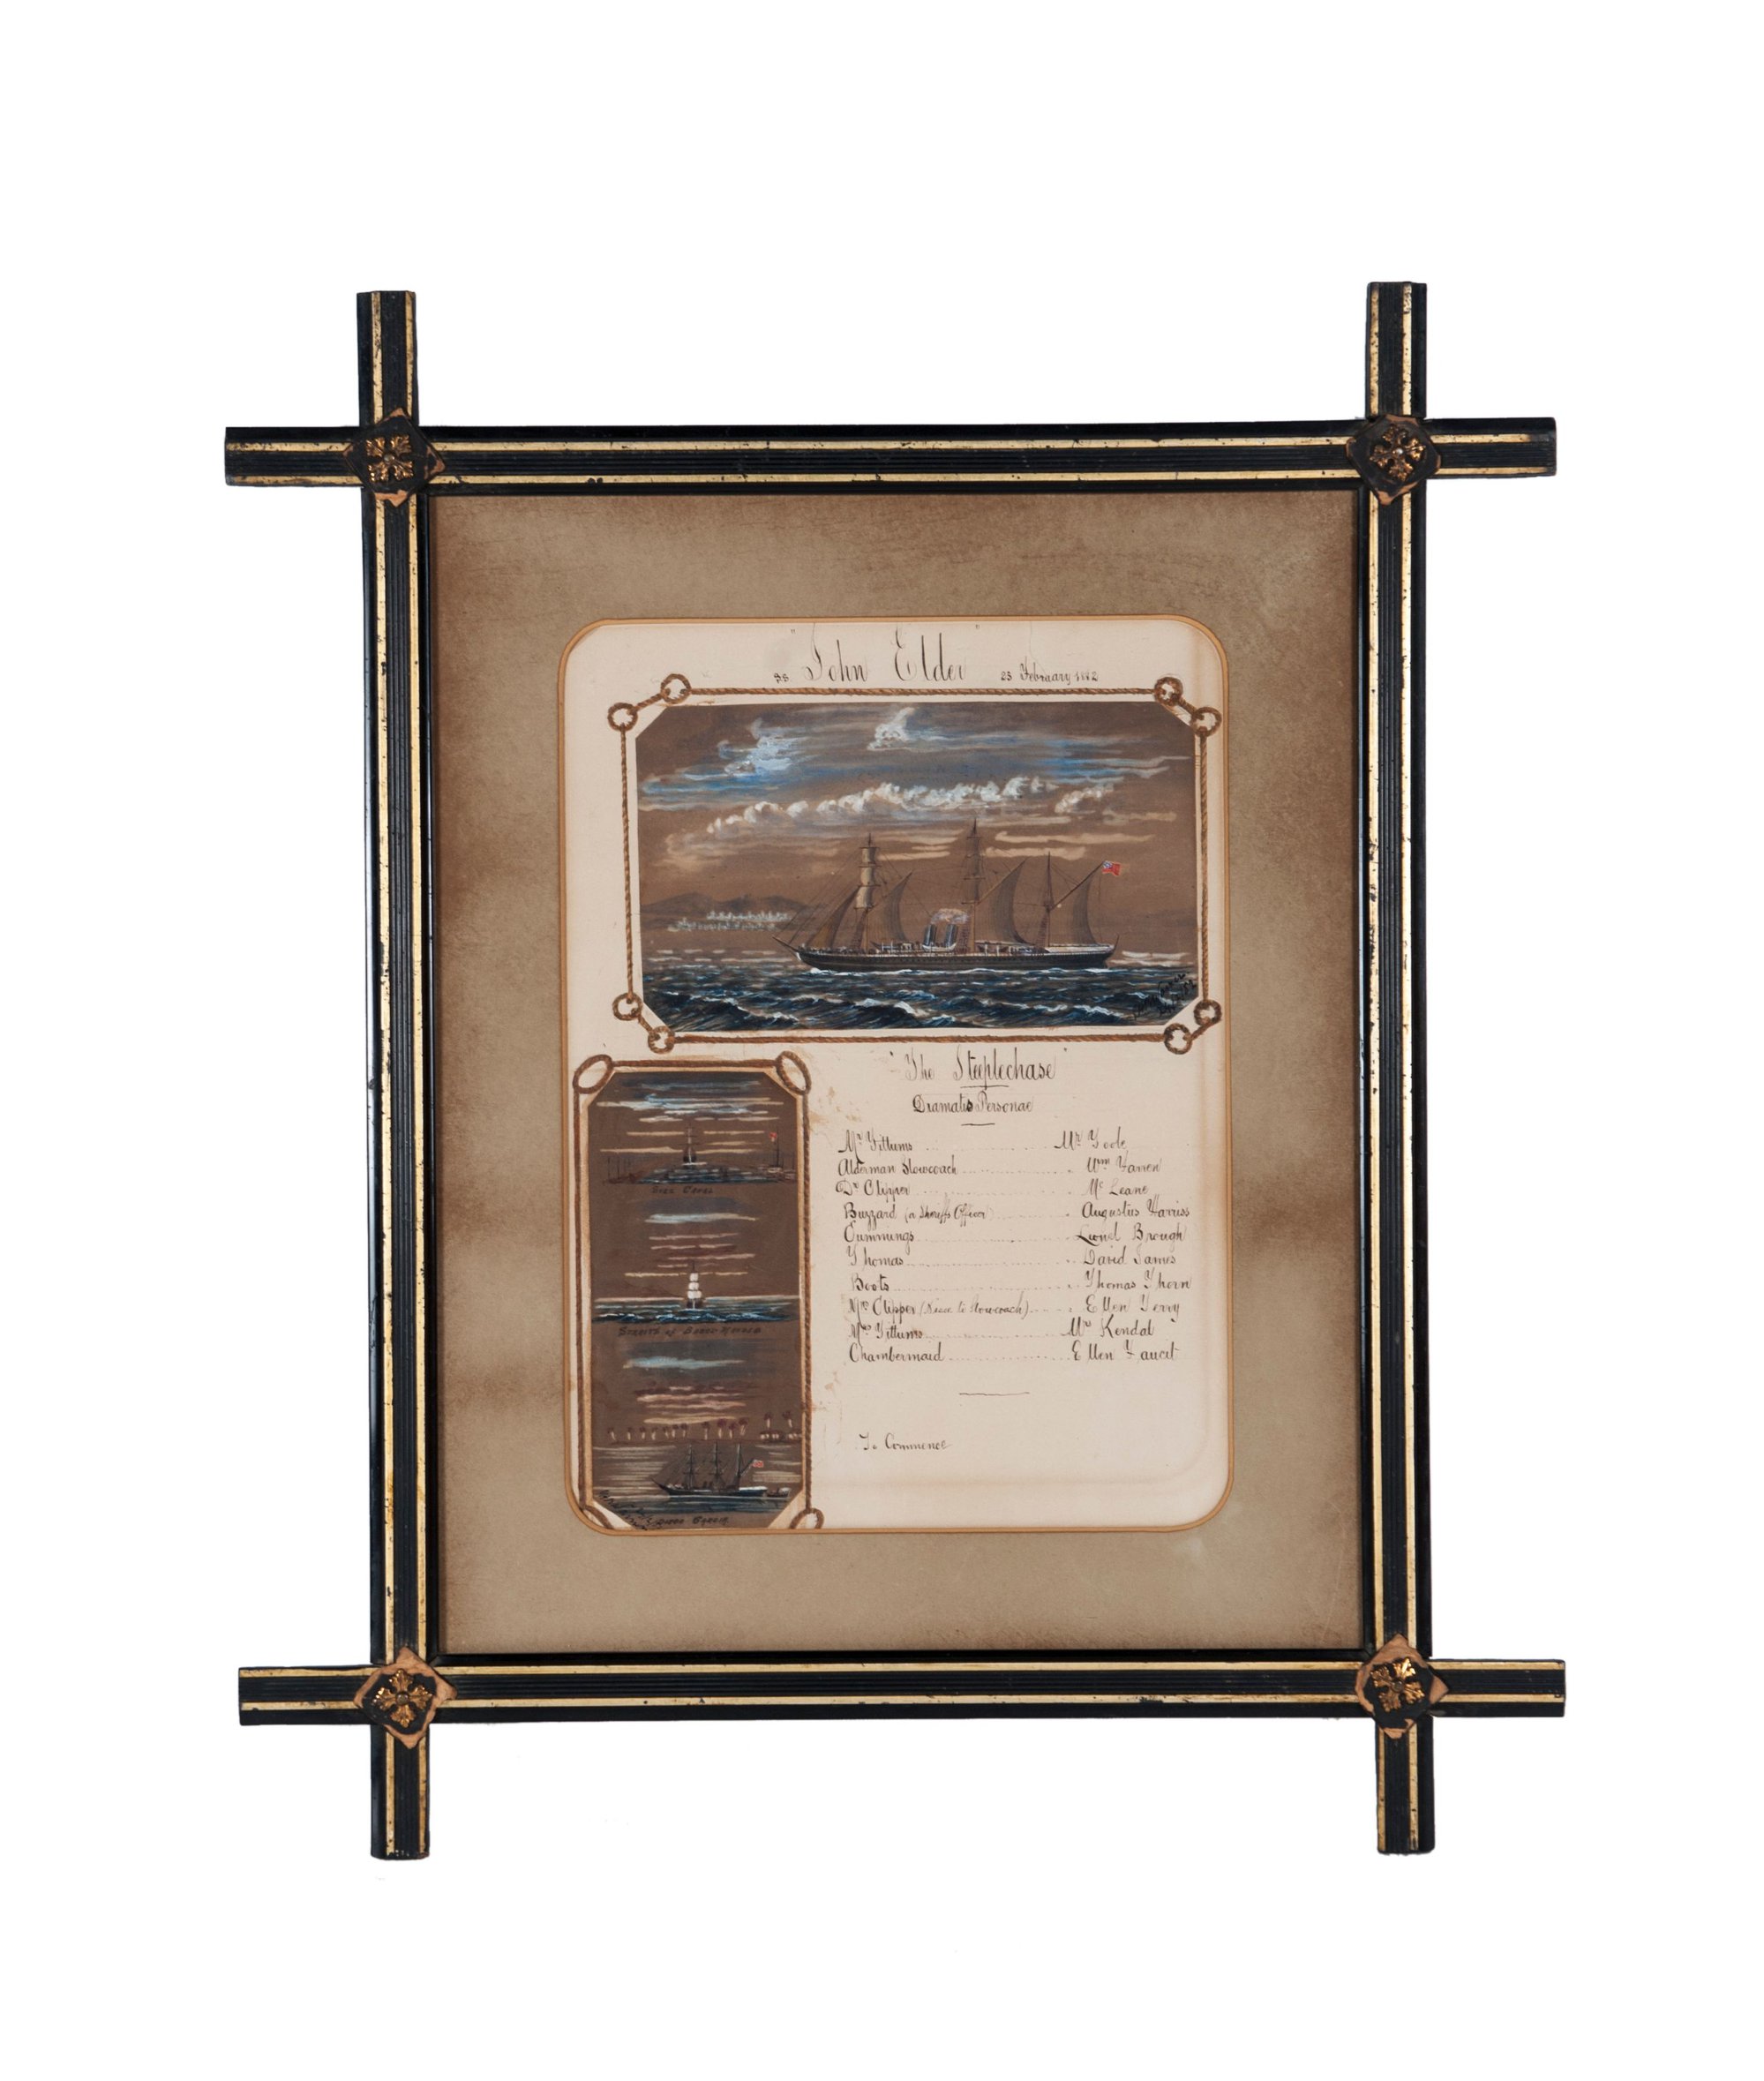 SS "John Elder" 23 February 1882
"The Steeplechase"
Dramatis Personae
Mr Tittums Mr Toole
Alderman Slowcoach Wm Farren
Dr Clipper Mc Leane
Buzzard (a Sheriffs Officer) Augustus Harriss
Cummings Lionel Brough
Thomas David James
Boots Thomas Thorn
Mrs Clipper (Niece to Slowcoach) Ellen Terry
Mrs Tittums Mrs Kendal
Chambermaid Ellen Faucit
To Commence
Suez Canal
Straits of